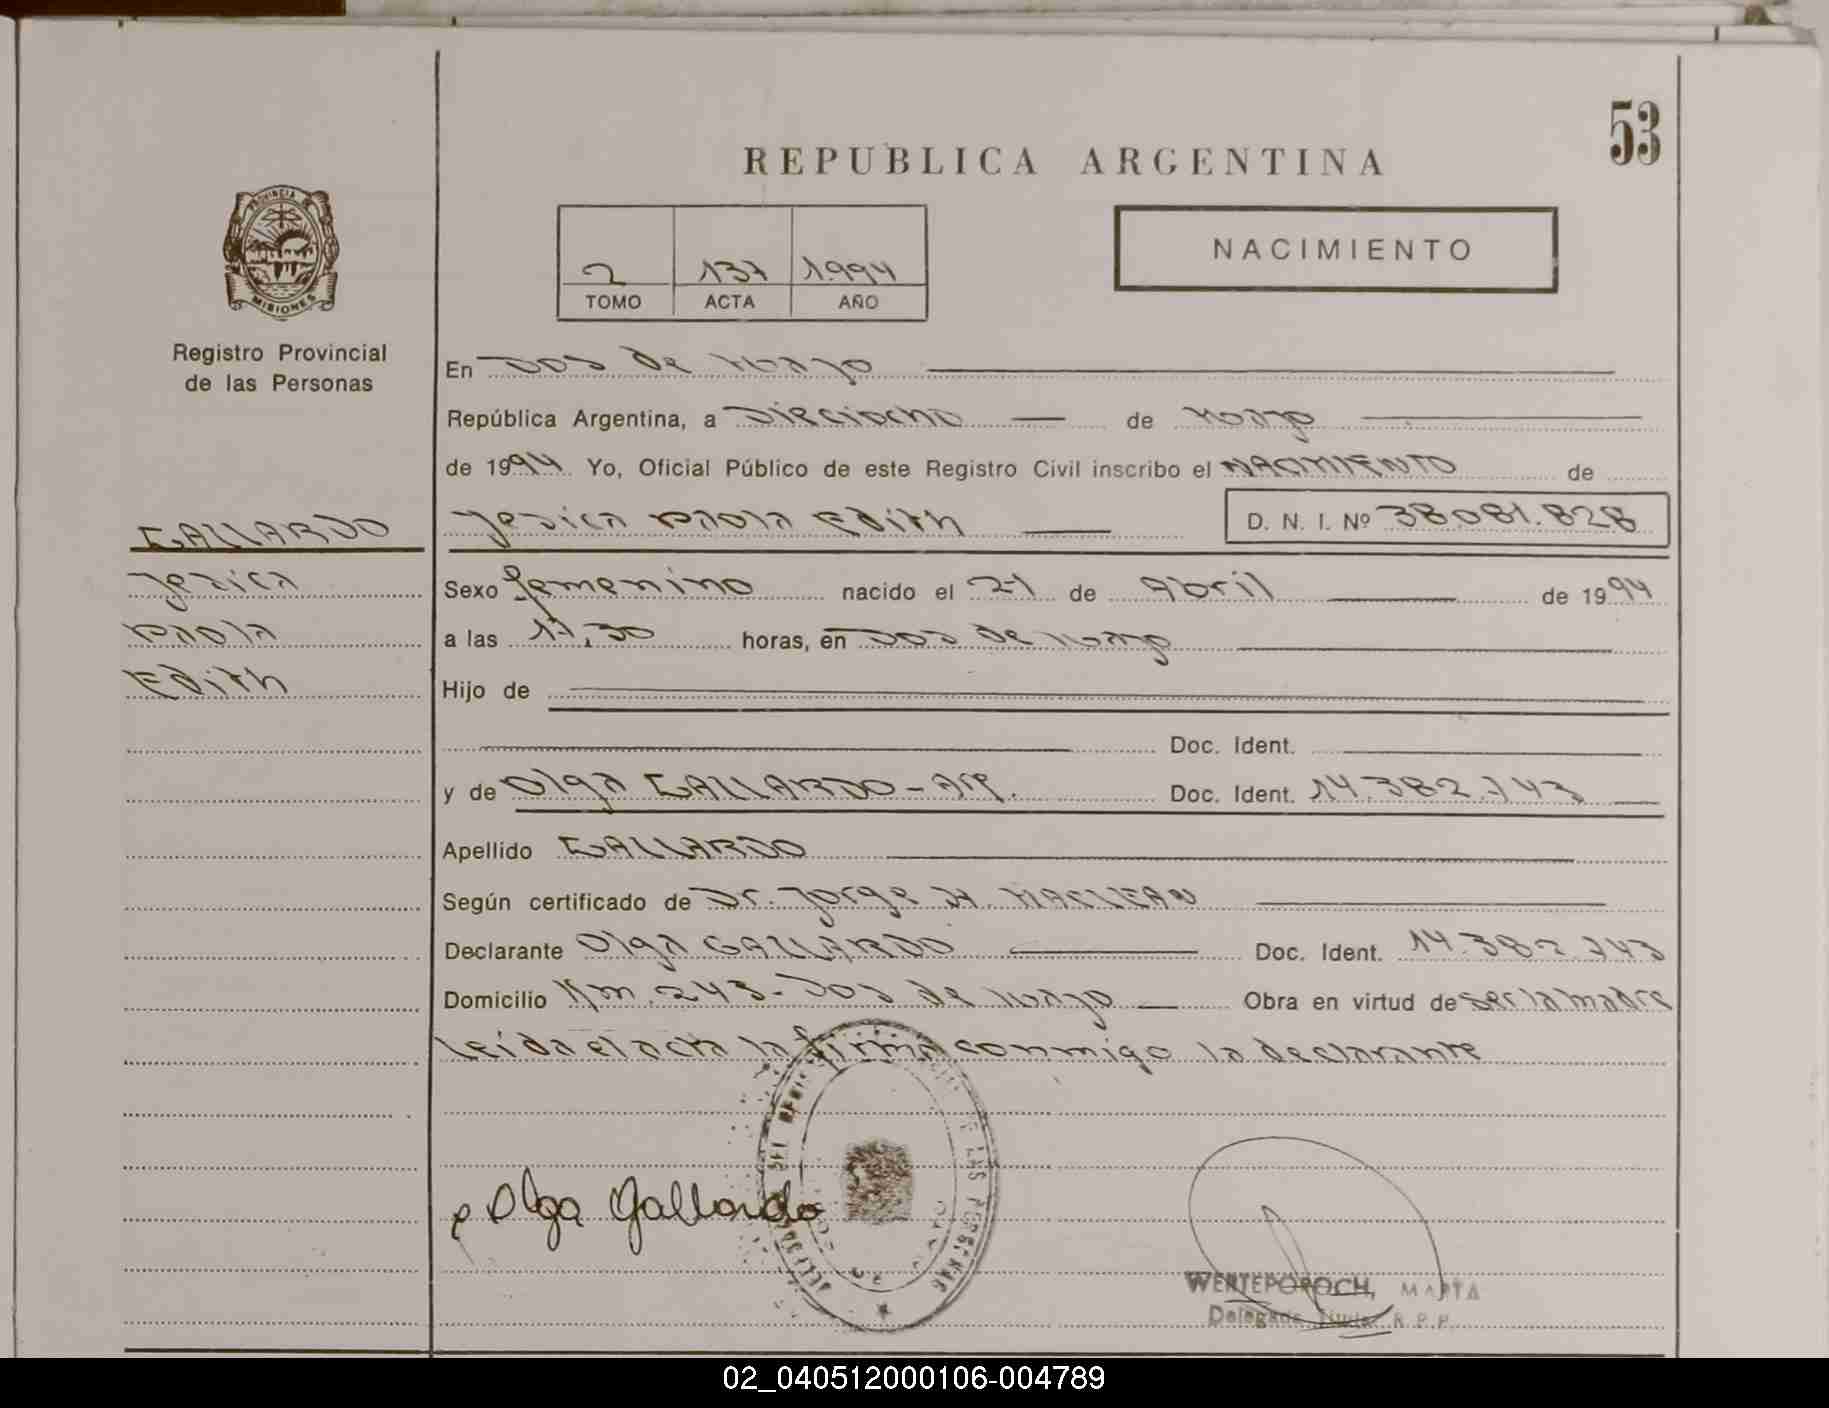 53
REPUBLICA ARGENTINA
PROVINCIA DE
MISIONES
2 137 1994
TOMO ACTA AÑO
NACIMIENTO
Registro Provincial
de las Personas
En Dos de Mayo
República Argentina, a Dieciocho de Mayo
de 1994 Yo, Oficial Público de este Registro Civil inscribo el NACIMIENTO de
GALLARDO Jesica Paola Edith D. N. I. Nº 38.081.828
Jesica
Paola
Edith
Sexo femenino nacido el 21 de Abril de 1994
a las 17,30 horas, en Dos de Mayo
Hijo de
Doc. Ident.
y de Olga GALLARDO - Arg. Doc. Ident. 14.382.743
Apellido GALLARDO
Según certificado de Dr. Jorge H. MACLEAN
Declarante Olga GALLARDO Doc. Ident. 14.382.743
Domicilio Km. 243 - Dos de Mayo Obra en virtud de ser la madre
Leida el acta la firma conmigo la declarante
Olga Gallardo
DE LAS PERSONAS
WERTEPOROCH, MARTA
Delegada Titular R.P.P.
02_040512000106-004789